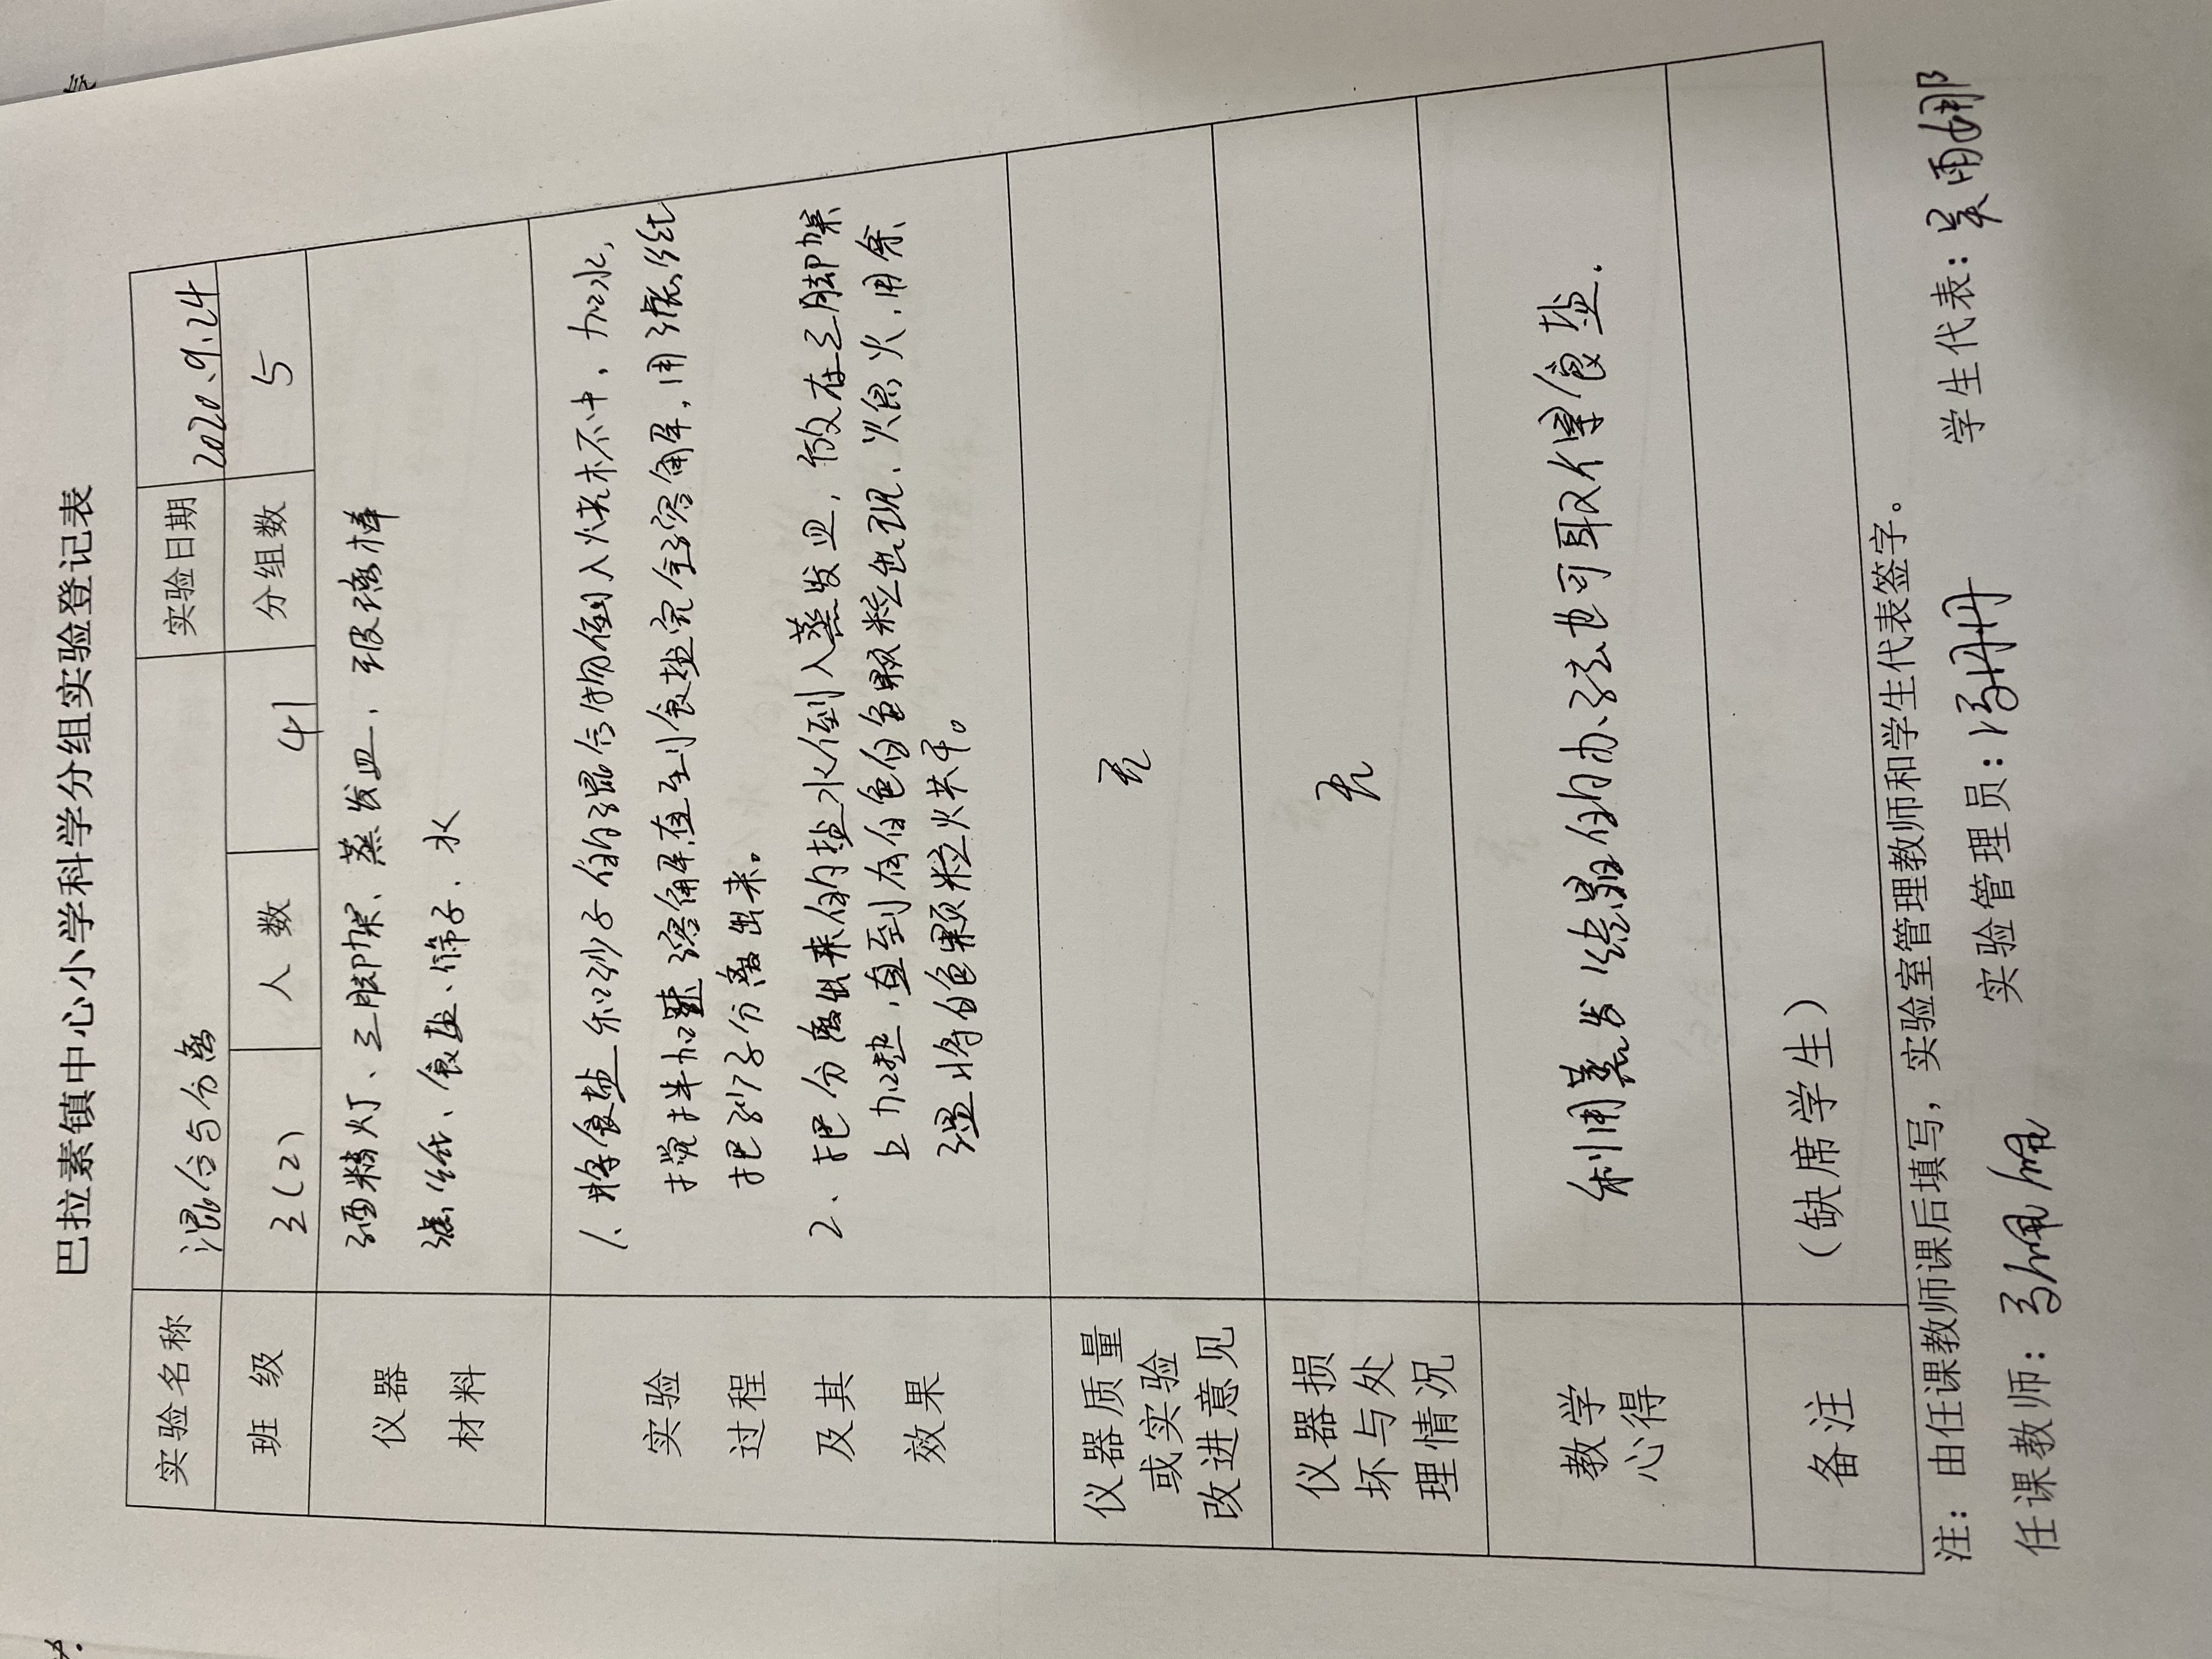 巴拉素镇中心小学科学分组实验登记表
实验名称 混合与分离 实验日期 2020.9.24
班 级 3(2) 人 数 41 分组数 5
仪器
材料
酒精灯、三脚架、蒸发皿、玻璃棒
滤纸、食盐、筛子、水
实验
过程
及其
效果
1、将食盐和砂子的混合物倒入烧杯中,加水,
搅拌加速溶解,直至到食盐完全溶解,用滤纸
把砂子分离出来。
2、把分离出来的盐水倒入蒸发皿,放在三脚架
上加热,直到有白色的颗粒出现、熄火,用余
温将白色颗粒烘干。
仪器质量
或实验
改进意见
无
仪器损
坏与处
理情况
无
教学
心得
利用蒸发结晶的办法也可取得食盐.
备注
(缺席学生)
注:由任课教师课后填写,实验室管理教师和学生代表签字。
任课教师: 实验管理员:冯丹丹 学生代表:吴雨娜